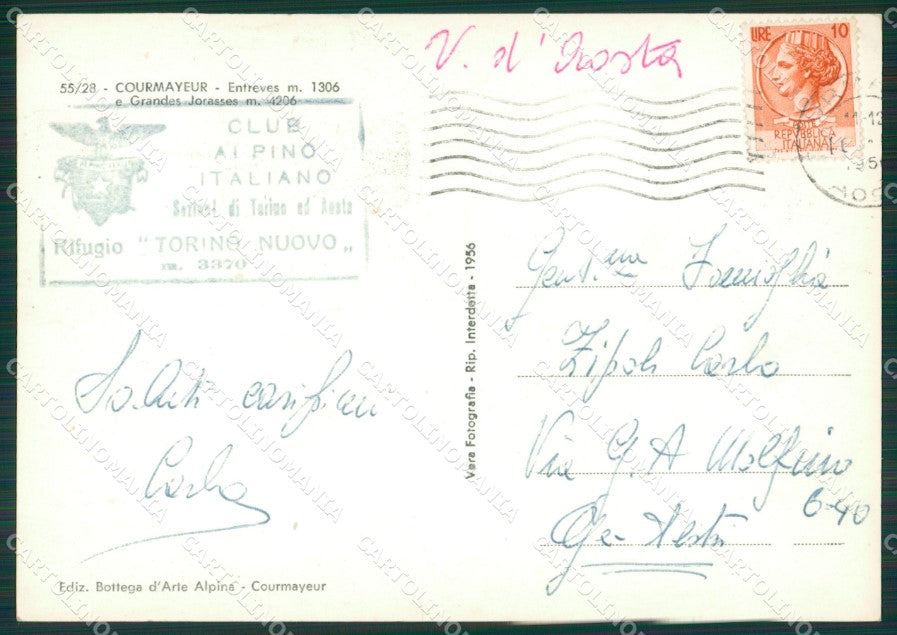 V. d'Aosta
LIRE 10
REPVBBLICA
ITALIANA
55/28 - COURMAYEUR - Entreves m. 1306
e Grandes Jorasses m. 4206
CLUB
ALPINO
ITALIANO
Sezioni di Torino ed Aosta
Rifugio "TORINO NUOVO„
m. 3370
Vera Fotografia - Rip. Interdetta - 1956
Gent.ma Famiglia
Zipoli Carlo
Via G. A Molfino
6-40
Ge-Sestri
Saluti carissimi
Carlo
Ediz. Bottega d'Arte Alpina - Courmayeur
CARTOLINOMANIA